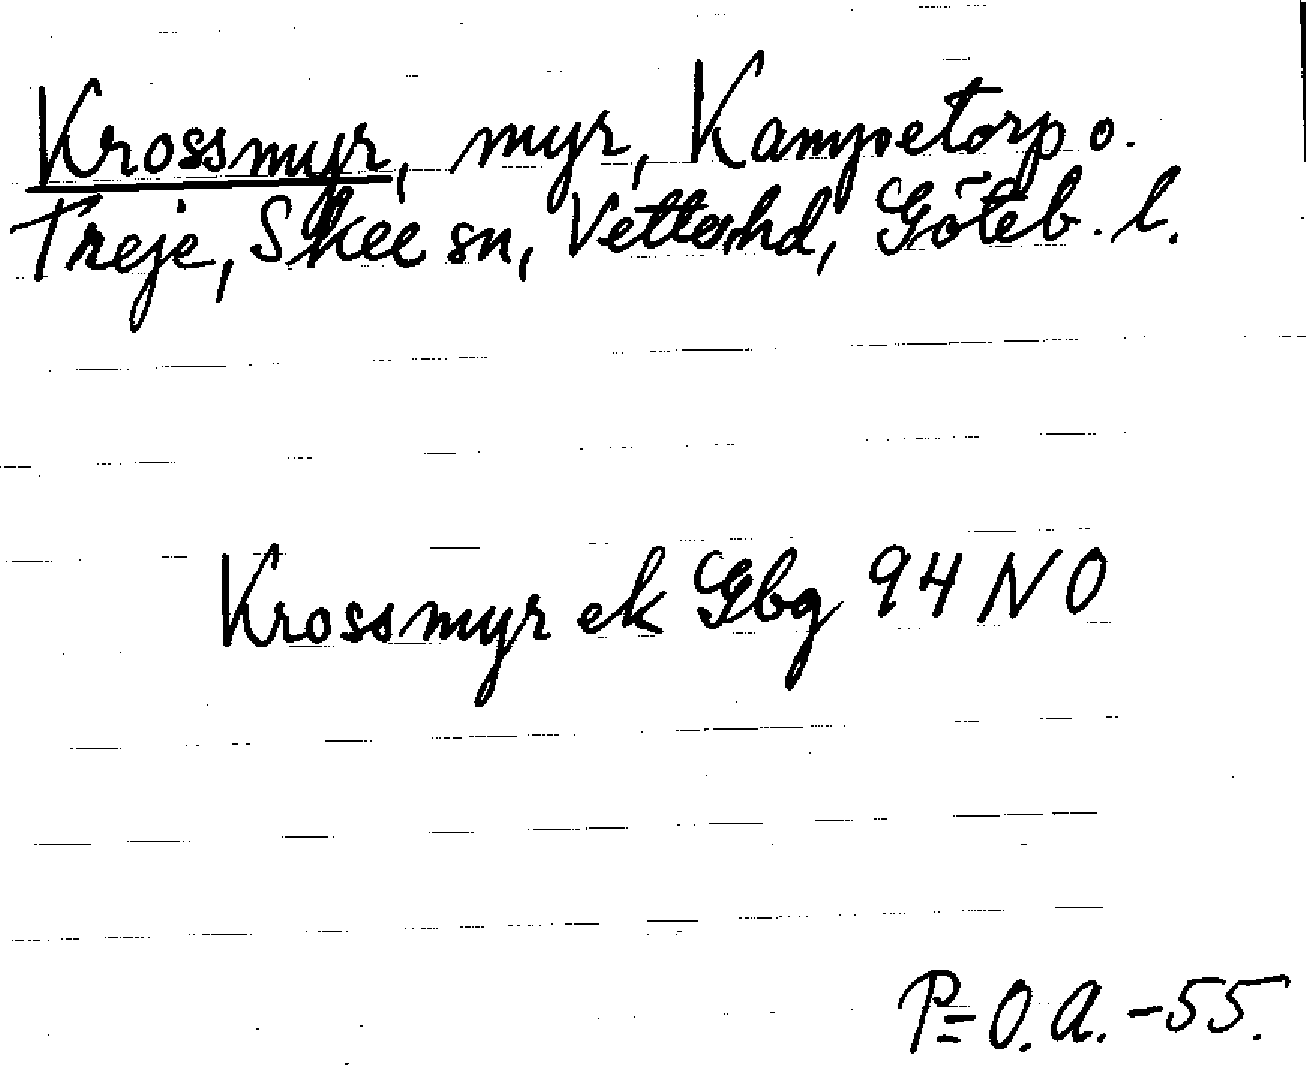 Krossmyr, myr, Kampetorp o.
Treje, Skee sn, Vette hd, Göteb. l.
Krossmyr ek Gbg 94 NO
P=O.A.-55.